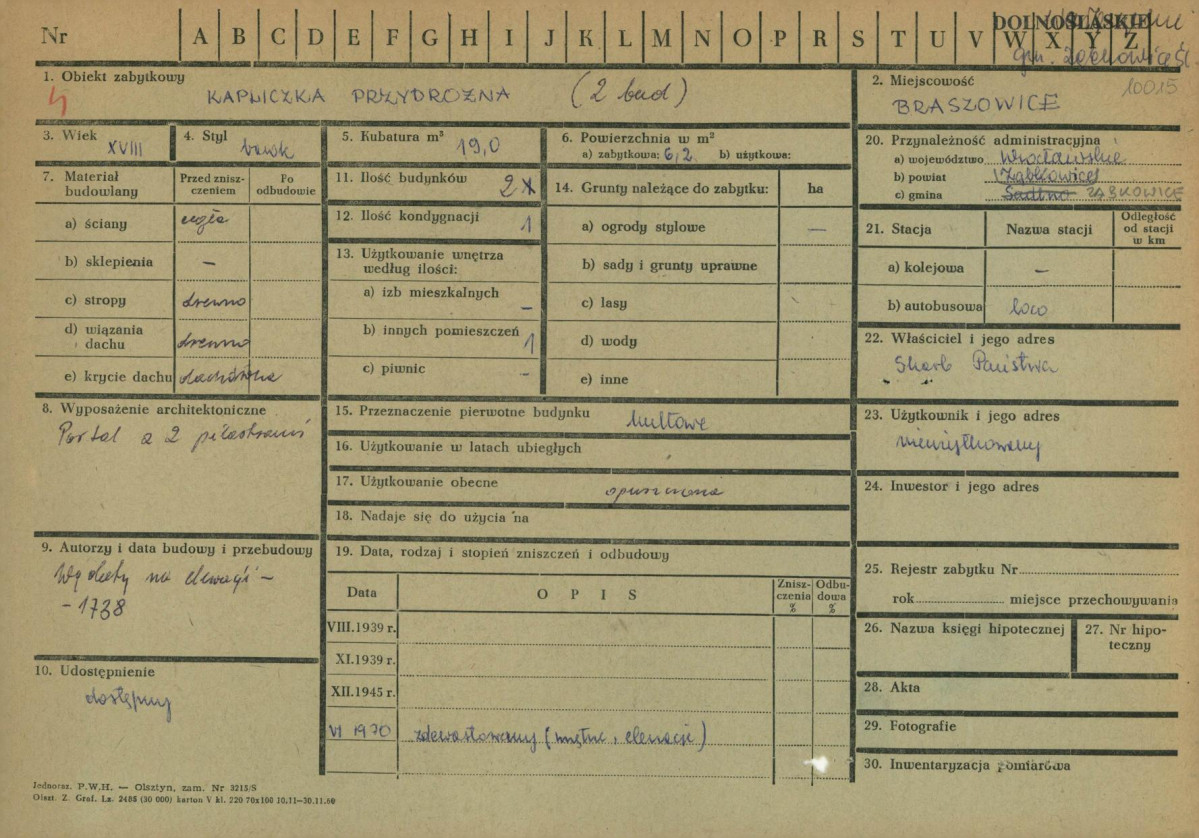 Nr
A B C D E F G H I J K L M N O P R S T U V W X Y Z
DOLNOŚLĄSKIE
gm. Ząbkowice Śl.
1. Obiekt zabytkowy
4
KAPLICZKA PRZYDROŻNA (2 bud)
2. Miejscowość
10015
BRASZOWICE
3. Wiek
XVIII
4. Styl
barok
5. Kubatura m³
19,0
6. Powierzchnia w m²
a) zabytkowa: 6,2 b) użytkowa:
7. Materiał budowlany
Przed zniszczeniem
Po odbudowie
a) ściany cegła
b) sklepienia —
c) stropy drewno
d) wiązania dachu drewno
e) krycie dachu dachówka
8. Wyposażenie architektoniczne
Portal z 2 pilastrami
9. Autorzy i data budowy i przebudowy
na elewacji —
- 1738
10. Udostępnienie
dostępny
11. Ilość budynków 2
12. Ilość kondygnacji 1
13. Użytkowanie wnętrza
według ilości:
a) izb mieszkalnych —
b) innych pomieszczeń 1
c) piwnic —
14. Grunty należące do zabytku: ha
a) ogrody stylowe —
b) sady i grunty uprawne
c) lasy
d) wody
e) inne
15. Przeznaczenie pierwotne budynku kultowe
16. Użytkowanie w latach ubiegłych
17. Użytkowanie obecne opuszczona
18. Nadaje się do użycia na
19. Data, rodzaj i stopień zniszczeń i odbudowy
Data
OPIS
Zniszczenia %
Odbudowa %
VIII.1939 r.
XI.1939 r.
XII.1945 r.
VI 1970 zdewastowany (wnętrze, elewacje)
20. Przynależność administracyjna
a) województwo Wrocławskie
b) powiat Ząbkowice
c) gmina Sadlno ZĄBKOWICE
21. Stacja
Nazwa stacji
Odległość od stacji w km
a) kolejowa —
b) autobusowa loco
22. Właściciel i jego adres
Skarb Państwa
23. Użytkownik i jego adres
nieużytkowany
24. Inwestor i jego adres
25. Rejestr zabytku Nr
rok miejsce przechowywania
26. Nazwa księgi hipotecznej
27. Nr hipoteczny
28. Akta
29. Fotografie
30. Inwentaryzacja pomiarowa
Jednorаz. P.W.H. — Olsztyn, zam. Nr 3215/S
Olszt. Z. Graf. Lz. 2488 (30 000) karton V kl. 220 70x100 10.11—30.11.60